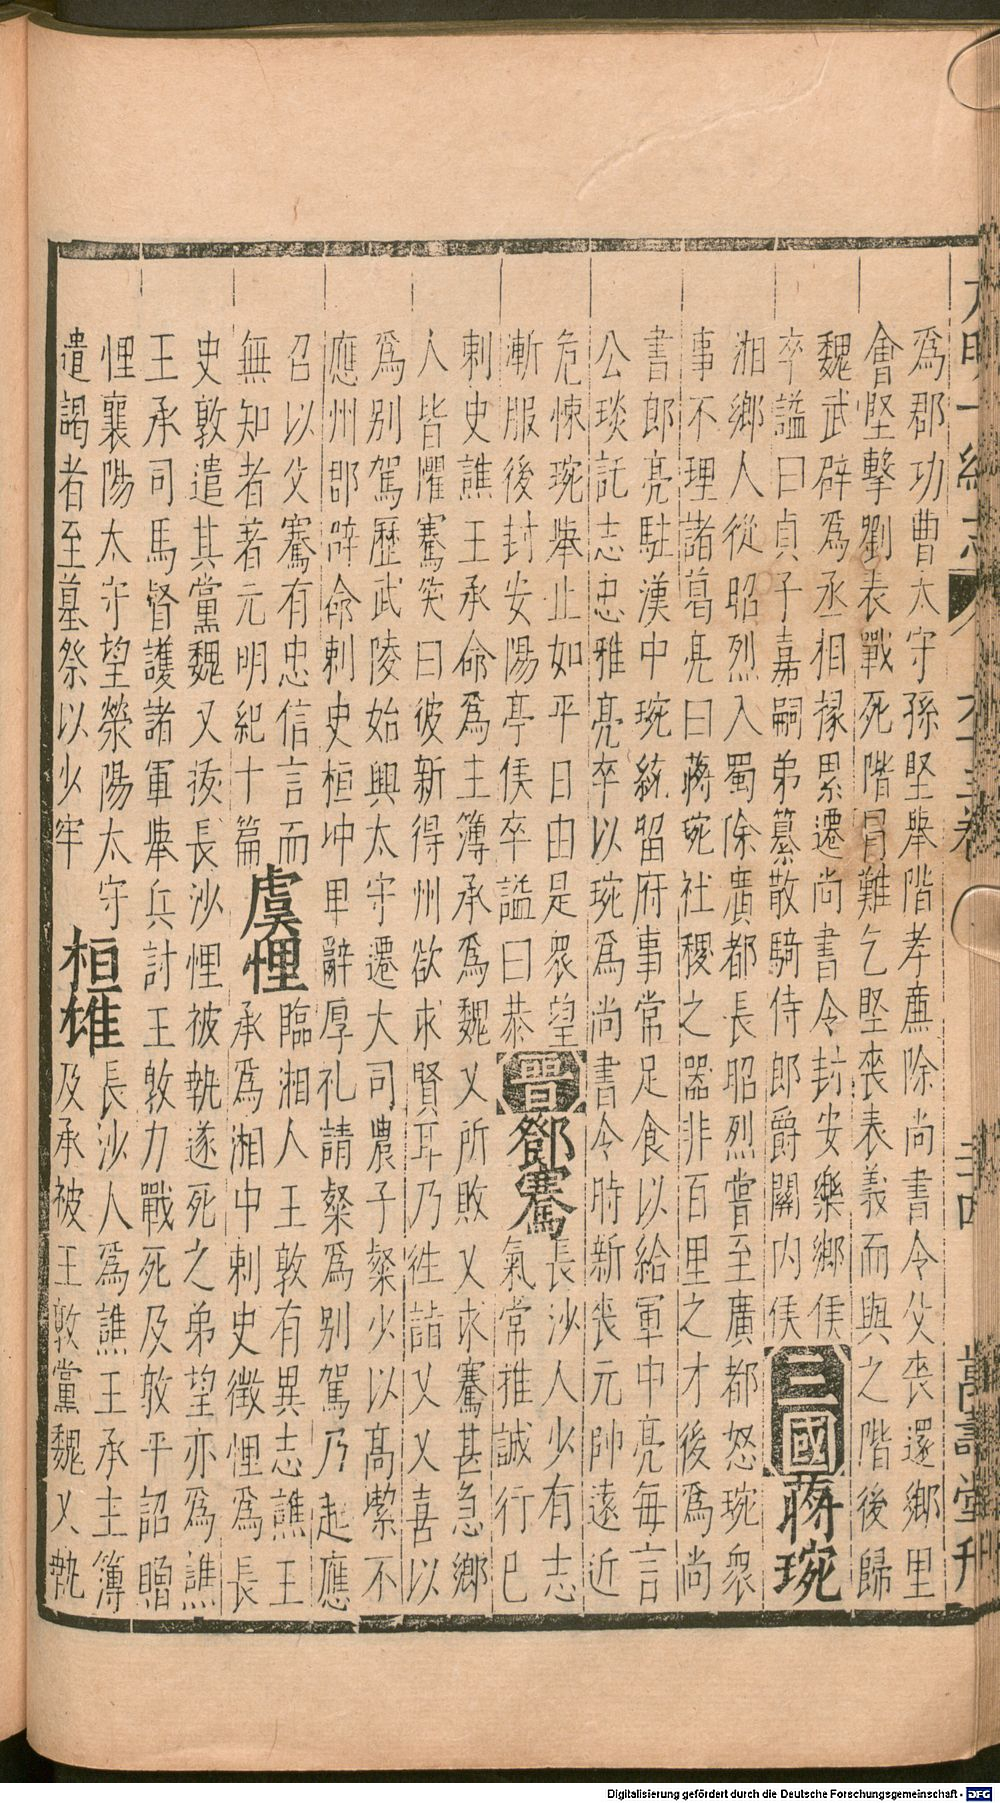 大明一統志 六十三卷 二十四 萬壽堂刊
為郡功曹太守孫堅舉階孝廉除尚書令父喪還鄉里
會堅擊劉表戰死階冒難乞堅喪表義而與之階後歸
魏武辟為丞相掾累遷尚書令封安樂鄉侯
卒謚曰貞子嘉嗣弟纂散騎侍郎爵關内侯
三國 蔣琬
湘鄉人從昭烈入蜀除廣都長昭烈嘗至廣都怒琬衆
事不理諸葛亮曰蔣琬社稷之器非百里之才後為尚
書郎亮駐漢中琬統留府事常足食以給軍中亮每言
公琰託志忠雅亮卒以琬為尚書令時新喪元帥遠近
危悚琬舉止如平日由是衆望
漸服後封安陽亭侯卒謚曰恭
晉 鄧騫
長沙人少有志
氣常推誠行已
刺史譙王承命為主簿承為魏乂所敗乂求騫甚急鄉
人皆懼騫笑曰彼新得州欲求賢耳乃往詣乂乂喜以
為別駕歷武陵始興太守遷大司農子粲少以髙潔不
應州郡辟命刺史桓冲卑辭厚礼請粲為別駕乃起應
召以父騫有忠信言而
無知者著元明紀十篇
虞悝
臨湘人王敦有異志譙王
承為湘中刺史徵悝為長
史敦遣其黨魏乂攻長沙悝被執遂死之弟望亦為譙
王承司馬督護諸軍舉兵討王敦力戰死及敦平詔贈
悝襄陽太守望滎陽太守
遣謁者至墓祭以少牢
桓雄
長沙人為譙王承主簿
及承被王敦黨魏乂執
Digitalisierung gefördert durch die Deutsche Forschungsgemeinschaft - DFG